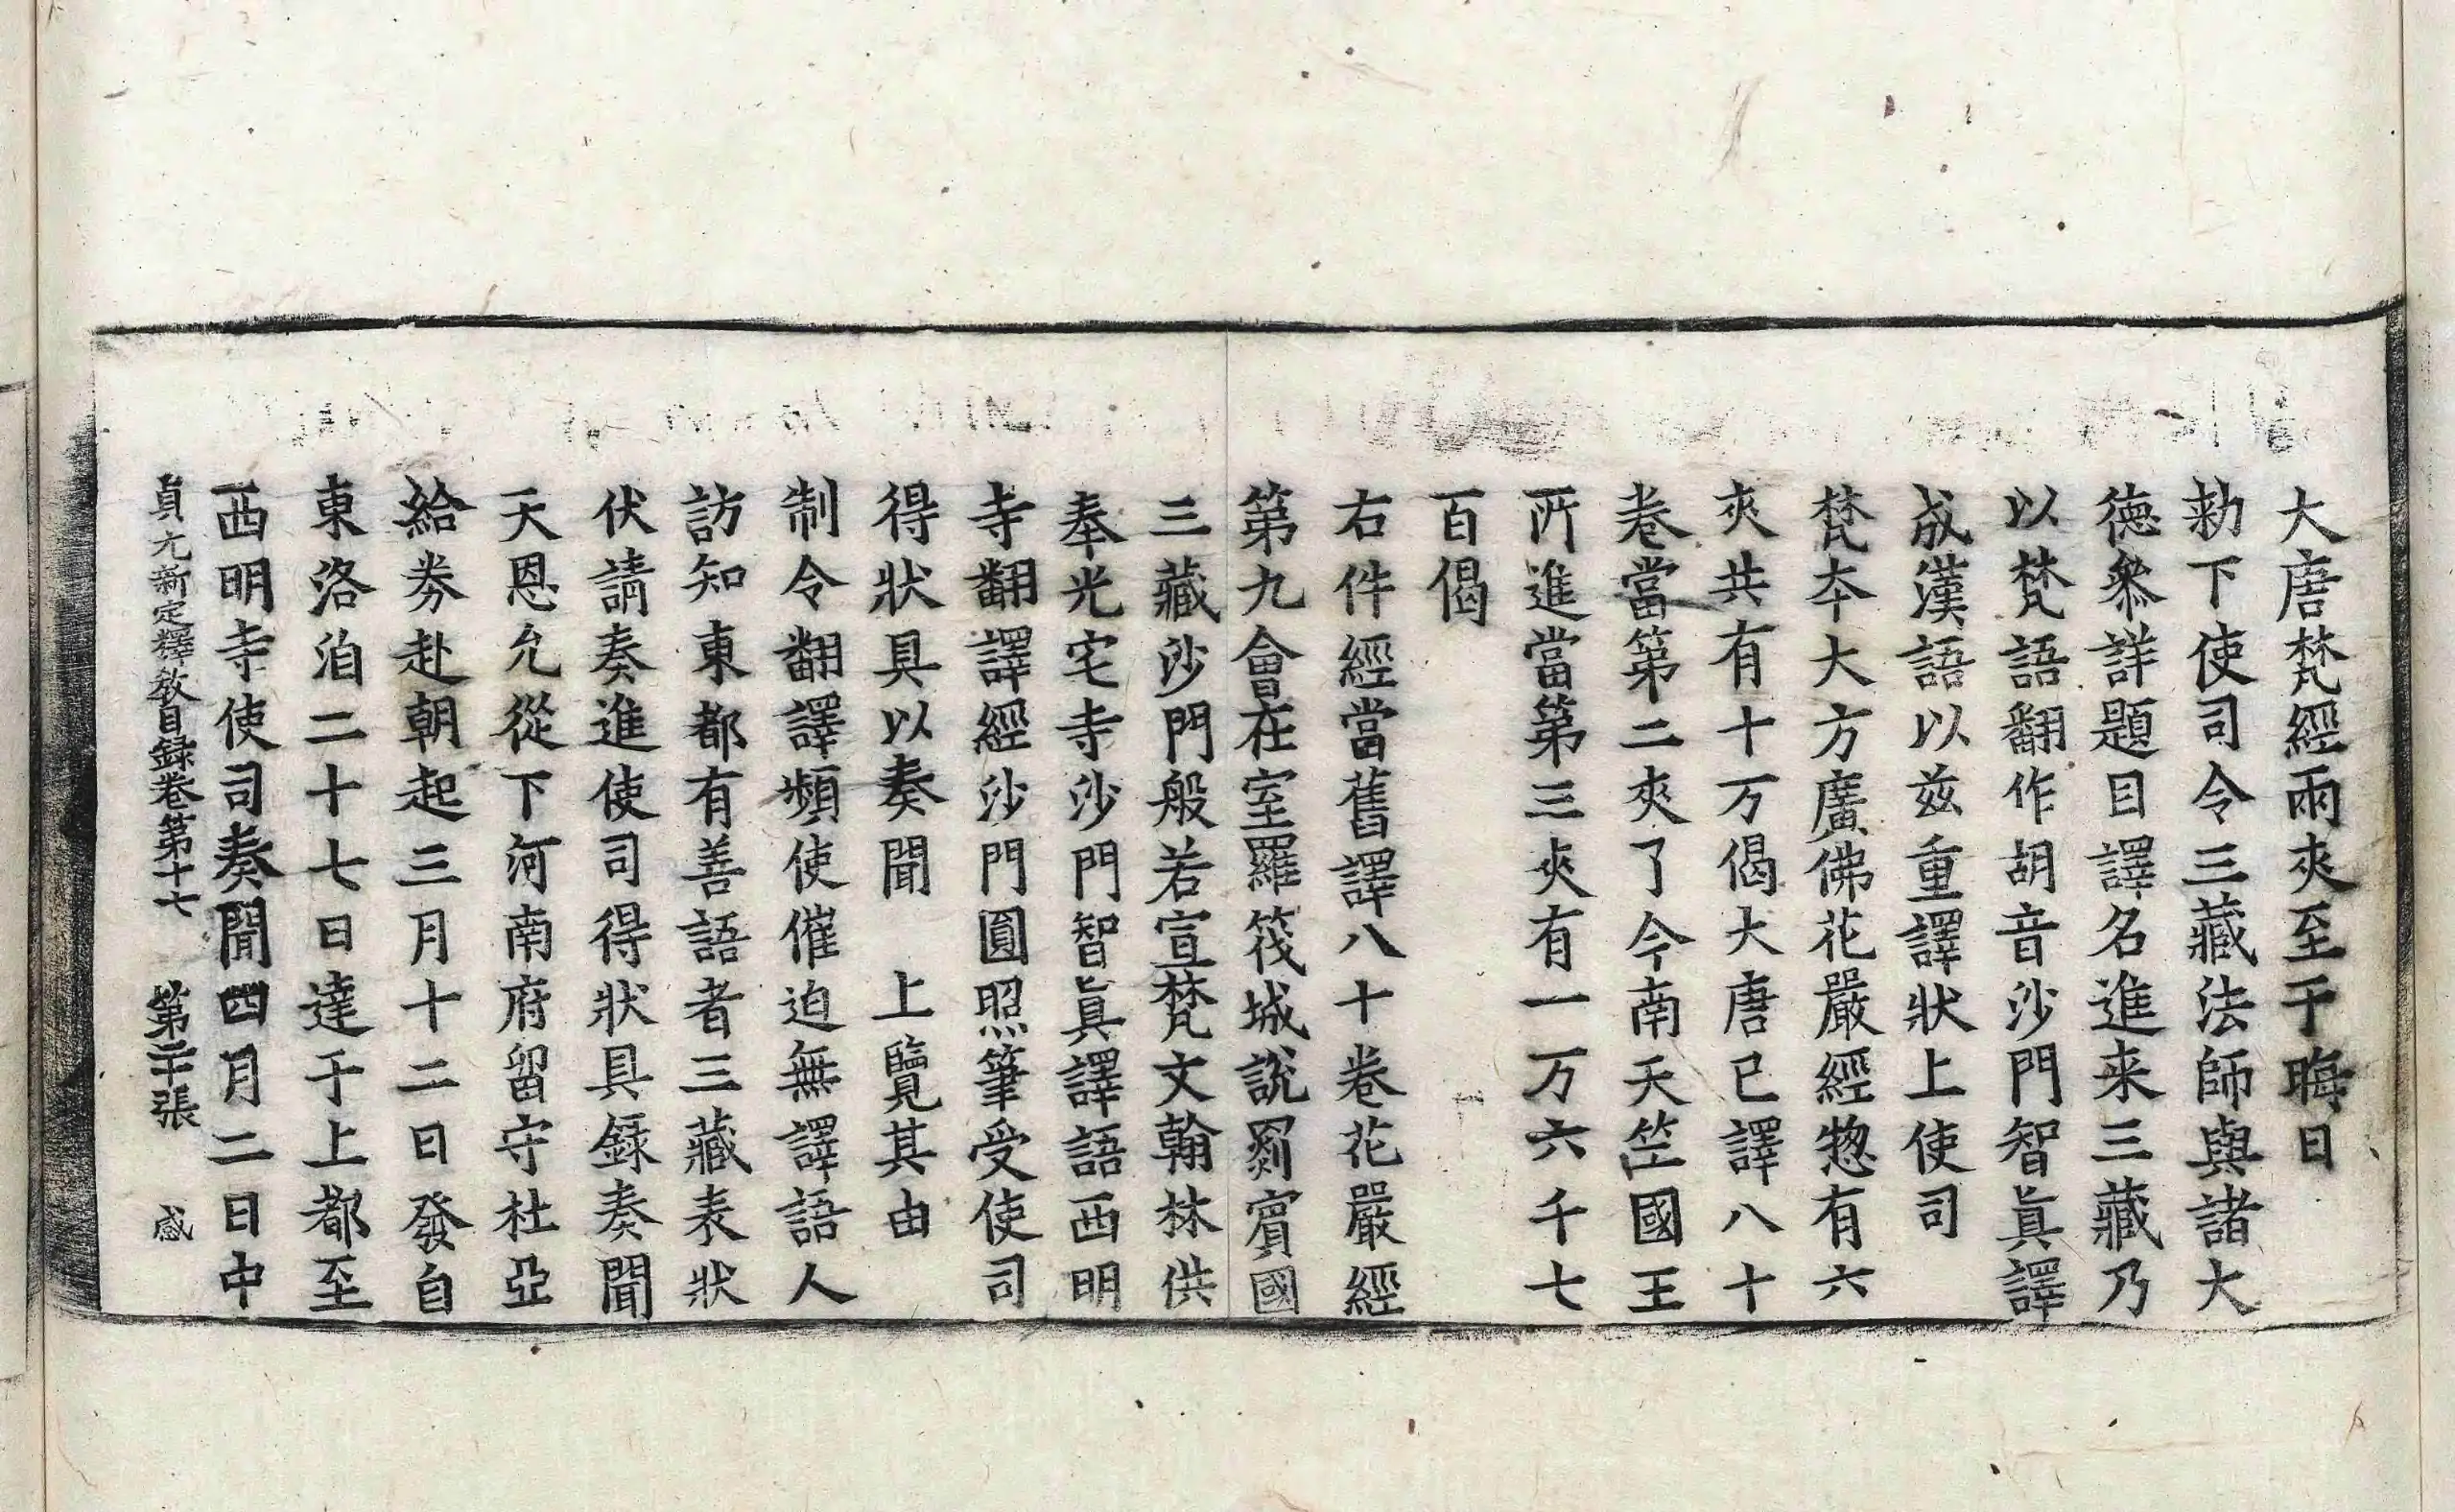 大唐梵經兩夾至于晦日
勑下使司令三藏法師與諸大
德叅詳題目譯名進来三藏乃
以梵語翻作胡音沙門智眞譯
成漢語以茲重譯狀上使司
梵夲大方廣佛花嚴經惣有六
夾共有十万偈大唐已譯八十
卷當第二夾了今南天竺國王
所進當第三夾有一万六千七
百偈
右件經當舊譯八十卷花嚴經
第九會在室羅筏城說罽賓國
三藏沙門般若宣梵文翰林供
奉光宅寺沙門智眞譯語西明
寺翻譯經沙門圓照筆受使司
得狀具以奏聞　上覽其由
制令翻譯頻使催迫無譯語人
訪知東都有善語者三藏表狀
伏請奏進使司得狀具録奏聞
天恩允從下河南府留守杜亞
給券赴朝起三月十二日發自
東洛洎二十七日達于上都至
西明寺使司奏聞四月二日中
貞元新定釋教目録卷第十七　第二十張　感